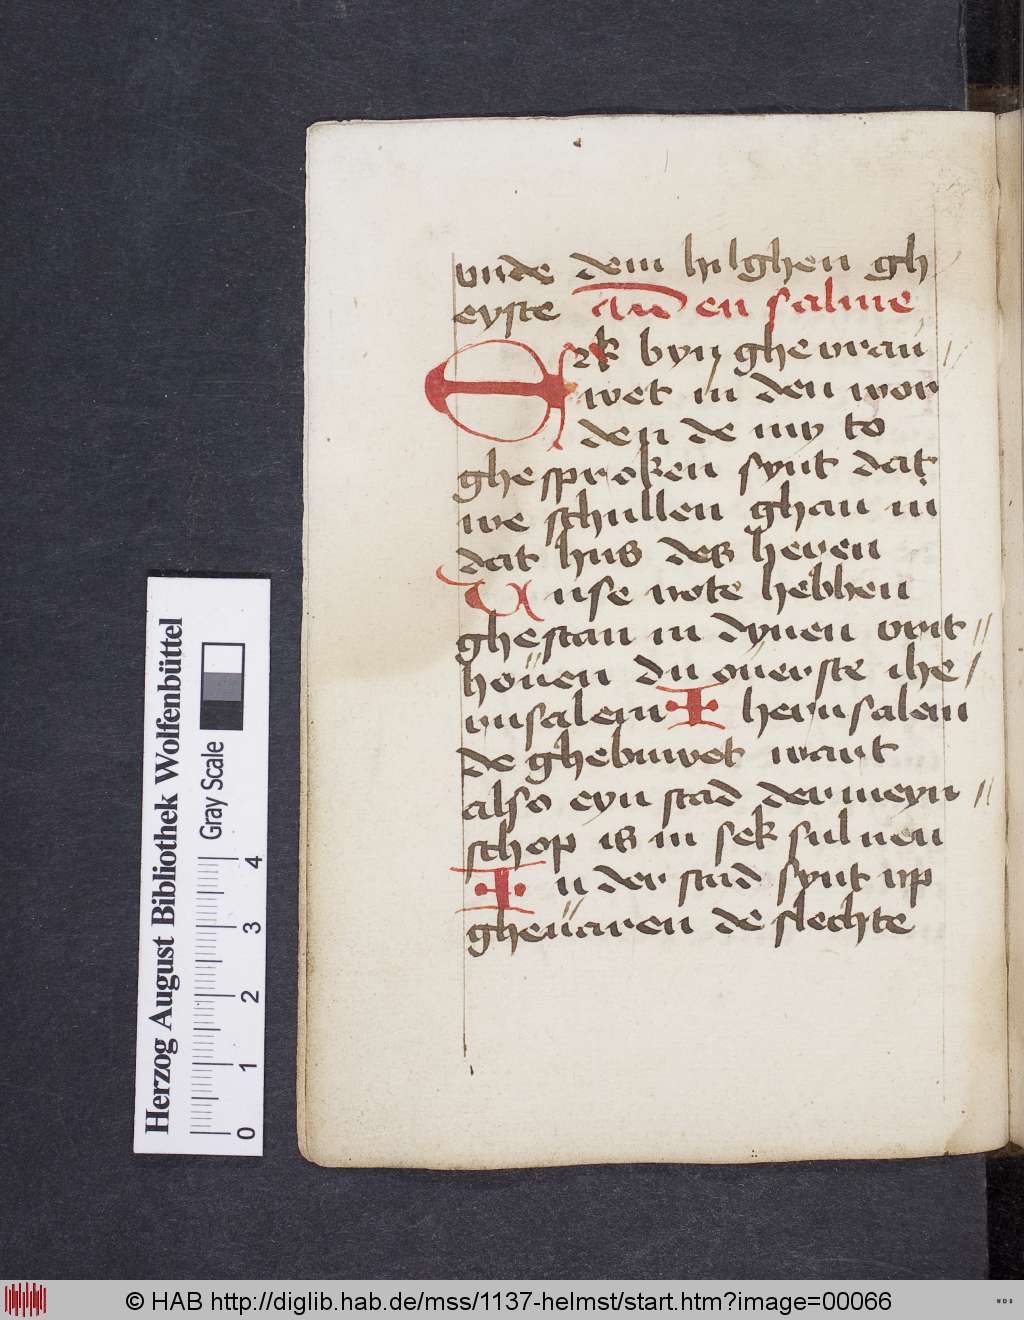 vnde dem hilghen gh
eyste and en salme
Ek byn ghe vrau
wet in den wor
den de my to
ghesproken synt dat
we schullen ghan in
dat hus des heren
Unse vote hebben
ghestan in dynen vort //
houen du ouerste ihe /
rusalem I herusalem
de ghebuwet wart
also eyn stad der meyn //
schop is in sek sul uen
I n der stad synt vp
gheuaren de slechte
Herzog August Bibliothek Wolfenbüttel
Gray Scale
0 1 2 3 4
© HAB http://diglib.hab.de/mss/1137-helmst/start.htm?image=00066